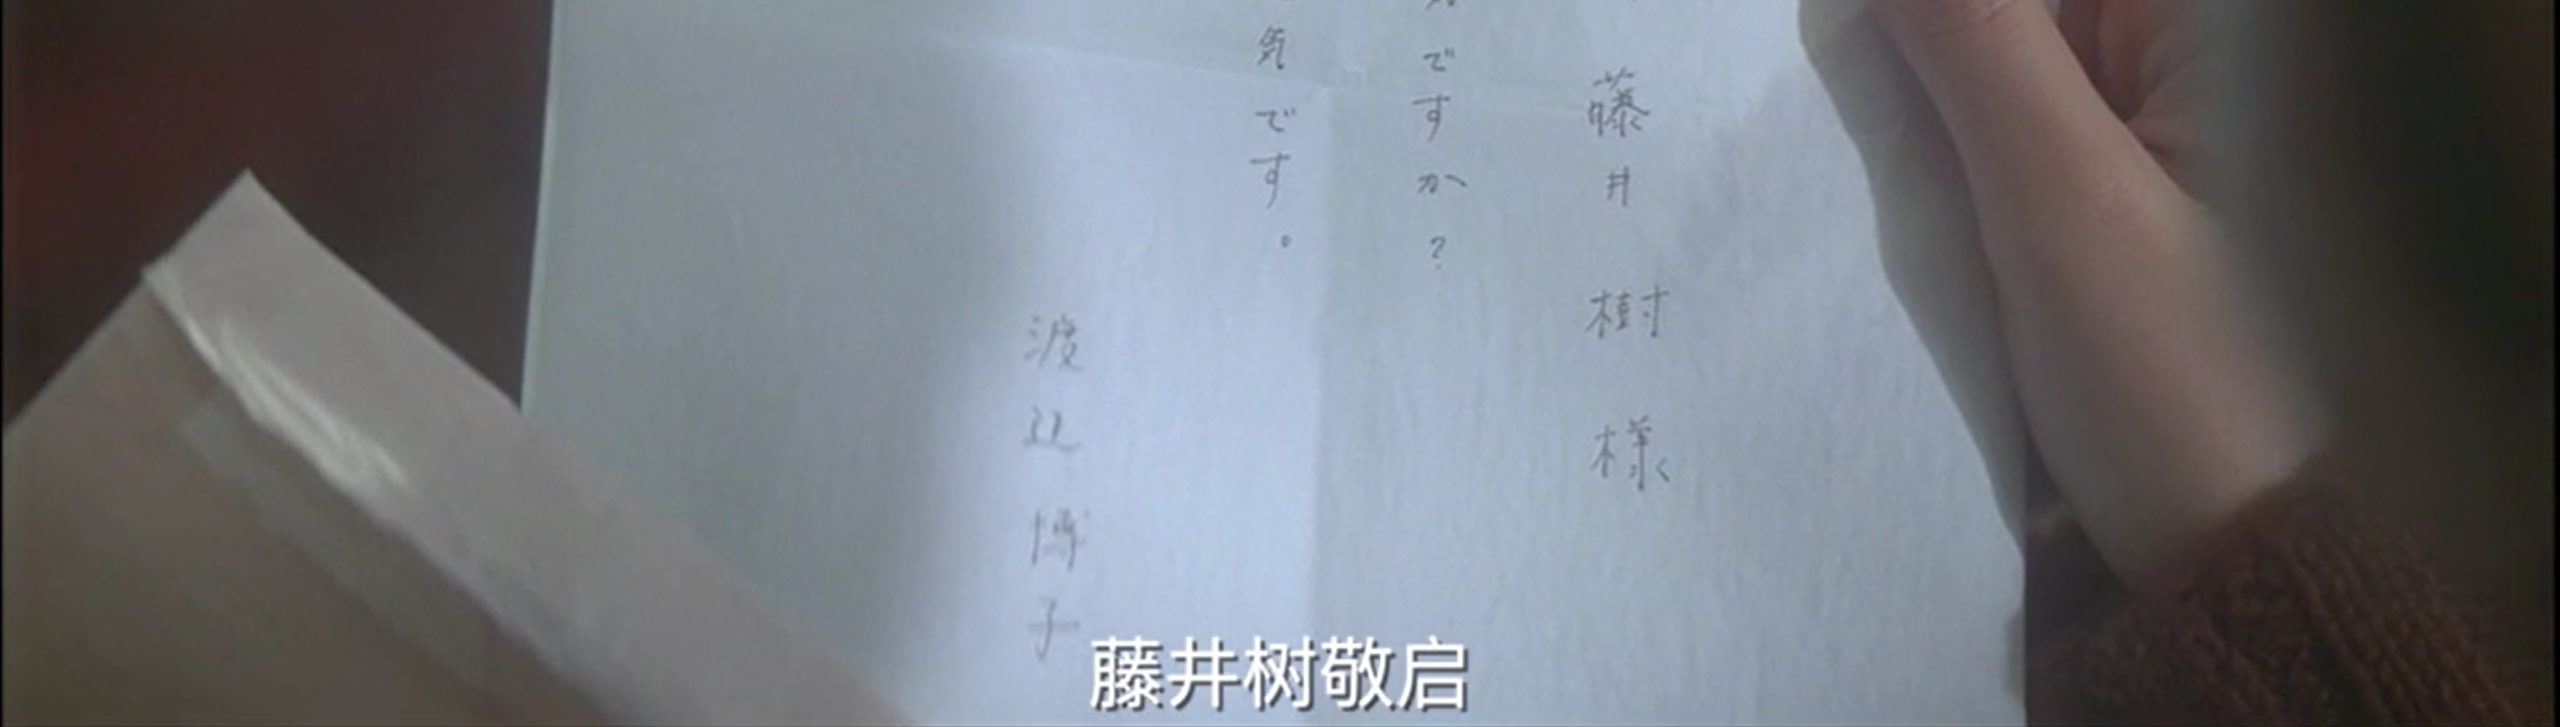 藤井 樹 様
ですか？
気です。
渡辺博子
藤井树敬启